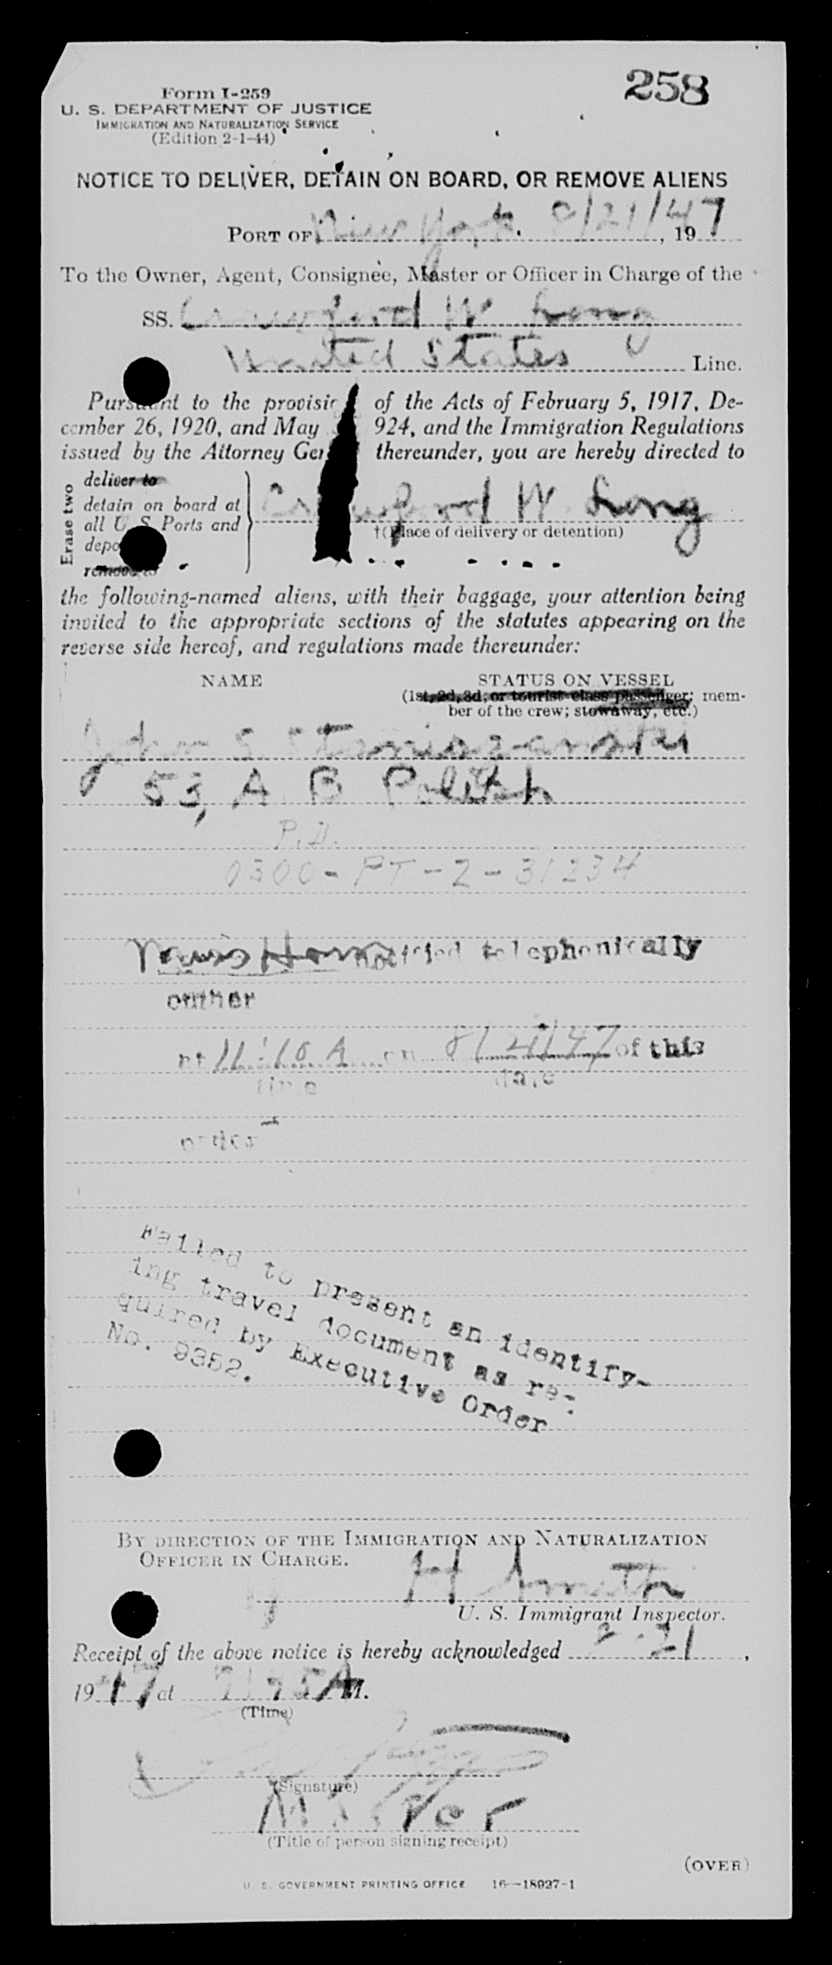 258
Form I-259
U. S. DEPARTMENT OF JUSTICE
IMMIGRATION AND NATURALIZATION SERVICE
(Edition 2-1-44)
NOTICE TO DELIVER, DETAIN ON BOARD, OR REMOVE ALIENS
PORT OF New York. 8/21/47, 19
To the Owner, Agent, Consignee, Master or Officer in Charge of the
SS. Crawford W Long
United States Line.
Pursuant to the provisi of the Acts of February 5, 1917, De-
cember 26, 1920, and May 924, and the Immigration Regulations
issued by the Attorney Ge thereunder, you are hereby directed to
Erase two
deliver to
detain on board at
all U S Ports and
depo
remove to
Crawford W. Long
†(Place of delivery or detention)
the following-named aliens, with their baggage, your attention being
invited to the appropriate sections of the statutes appearing on the
reverse side hereof, and regulations made thereunder:
NAME STATUS ON VESSEL
(1st, 2d, 3d, or tourist class passenger; mem-
ber of the crew; stowaway, etc.)
John S Staniszewski
53, A B Polish
P.D.
0300-PT-2-31234
notified telephonically
at 11:10 A on 8/21/47 of this
time date
order
Failed to present an identify-
ing travel document as re-
quired by Executive Order
No. 9352.
BY DIRECTION OF THE IMMIGRATION AND NATURALIZATION
OFFICER IN CHARGE.
H Smith
U. S. Immigrant Inspector.
Receipt of the above notice is hereby acknowledged 21,
1947 at A M.
(Time)
(Signature)
(Title of person signing receipt)
(OVER)
U. S. GOVERNMENT PRINTING OFFICE 16—18927-1